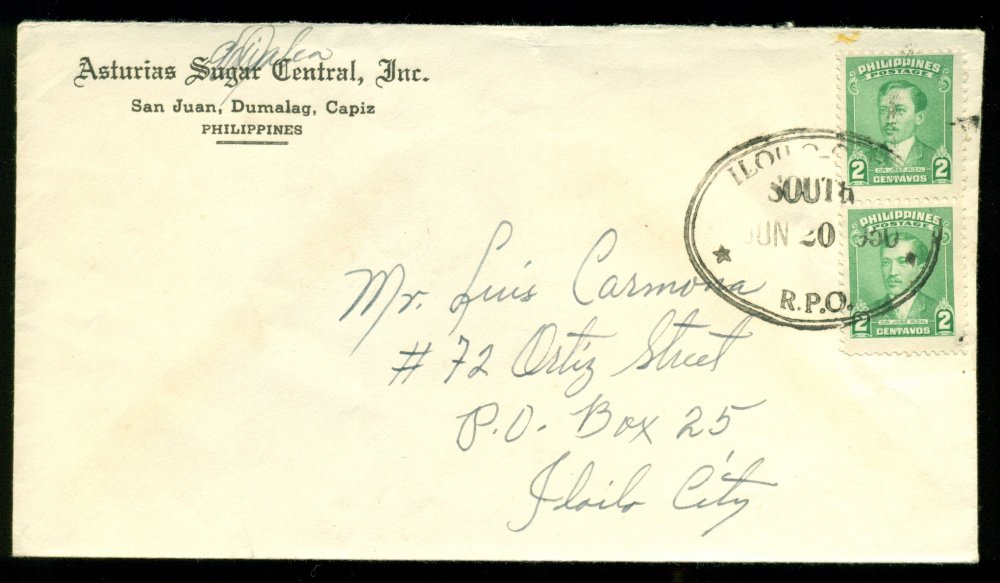 Asturias Sugar Central, Inc.
San Juan, Dumalag, Capiz
PHILIPPINES
PHILIPPINES
POSTAGE
2 DR. JOSE RIZAL 2
CENTAVOS
SOUTH
JUN 20 1950
R.P.O.
PHILIPPINES
POSTAGE
2 DR. JOSE RIZAL 2
CENTAVOS
Mr. Luis Carmona
# 72 Ortiz Street
P.O. Box 25
Iloilo City